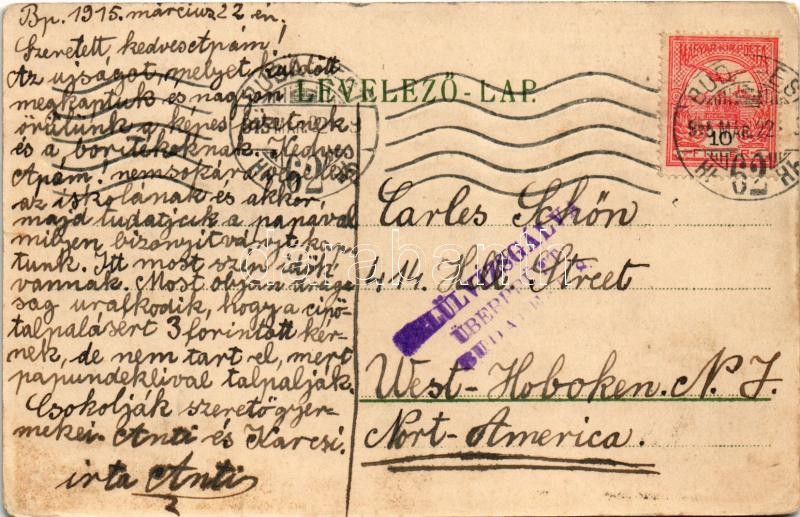 Bp. 1915. március 22 én.
Szeretett, kedvesetpám!
Az ujságot, melyet küldött
megkaptuk és nagyon
örülünk a képes
és a boritékeknak. Kedves
Apám! nemsokára vége lesz
az iskolának és akkor,
majd tudatjuk a papával
milyen bizonyitványt kap-
tunk. Itt most szép idők
vannak. Most olyan drága-
ság uralkodik, hogy a cipő-
talpalásért 3 forintott kér-
nek, de nem tart el, mert
papundeklival talpalják.
Csokolják szerető gyer-
mekei. Anti és Karcsi.
irta Anti
LEVELEZŐ-LAP.
MAGYAR KIR. POSTA
10
BUDAPEST
915 MÁR. 22
62
FELÜLVIZSGÁLVA
ÜBERPRÜFT
BUDAPEST
Carles Schön
414. Hill Street
West-Hoboken. N. J.
Nort-America.